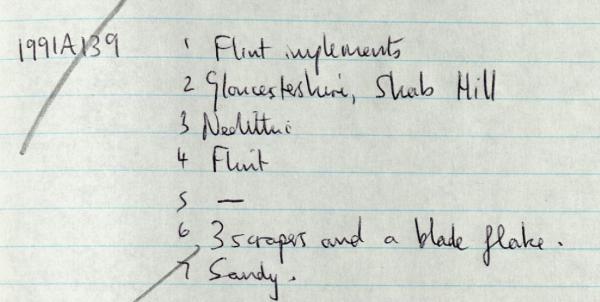 1991A139 1 Flint implements
2 Gloucestershire, Shab Hill
3 Neolithic
4 Flint
5 —
6 3 scrapers and a blade flake.
7 Sandy.